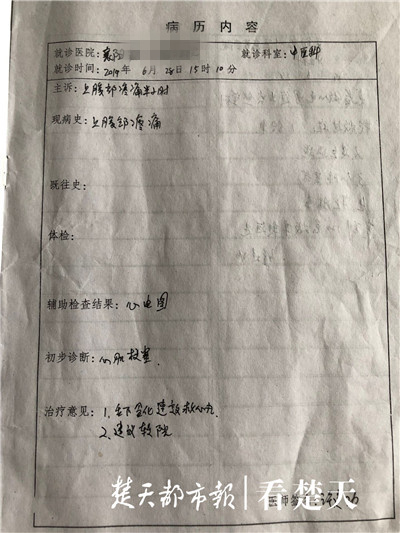 病历内容
就诊医院：襄阳 就诊科室：中医科
就诊时间：2019年 6月 28日 15时 10分
主诉：上腹部疼痛半小时
现病史：上腹部疼痛
既往史：
体检：
辅助检查结果：心电图
初步诊断：心肌梗塞
治疗意见：1.舌下含化速效救心丸
2.建议转院
医师签名：
楚天都市報 看楚天